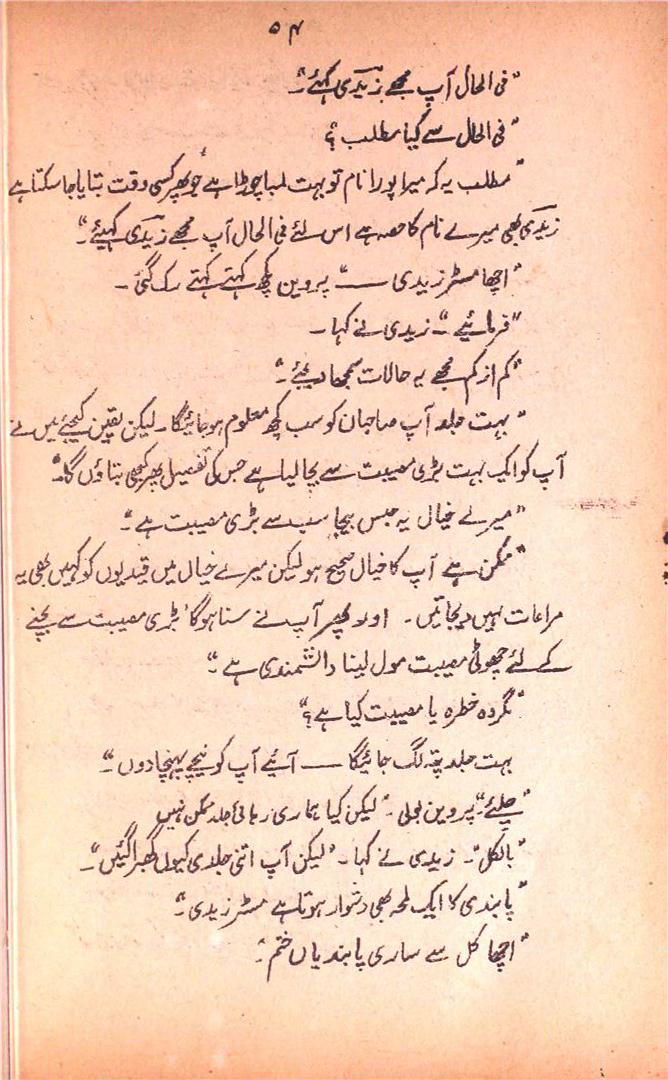 ۵۴
"فی الحال آپ مجھے زیدی کہئے۔"
"فی الحال سے کیا مطلب؟
"مطلب یہ کہ میرا پورا نام تو بہت لمبا چوڑا ہے جو پھر کسی وقت بتایا جا سکتا ہے
زیدی بھی میرے نام کا حصہ ہے اس لئے فی الحال آپ مجھے زیدی کہیئے۔"
"اچھا مسٹر زیدی ——" پروین کچھ کہتے کہتے رک گئی۔
"فرمائیے"۔ زیدی نے کہا۔
"کم از کم مجھے یہ حالات سمجھا دیجئے۔"
"بہت جلد آپ صاحبان کو سب کچھ معلوم ہو جائیگا۔ لیکن یقین کیجئے میں نے
آپ کو ایک بہت بڑی مصیبت سے بچا لیا ہے جس کی تفصیل پھر کبھی بتاؤں گا۔"
"میرے خیال یہ حبس بیجا سب سے بڑی مصیبت ہے۔"
"ممکن ہے آپ کا خیال صحیح ہو لیکن میرے خیال میں قیدیوں کو کہیں بھی یہ
مراعات نہیں دیجاتیں۔ اور پھر آپ نے سنا ہوگا' بڑی مصیبت سے بچنے
کے لئے چھوٹی مصیبت مول لینا دانشمندی ہے۔"
"مگر وہ خطرہ یا مصیبت کیا ہے؟"
بہت جلد پتہ لگ جائیگا —— آئیے آپ کو نیچے پہنچا دوں۔"
"چلئے" پروین بولی۔ "لیکن کیا ہماری رہائی جلد ممکن نہیں
"بالکل"۔ زیدی نے کہا۔ "لیکن آپ اتنی جلدی کیوں گھبرا گئیں"۔
"پابندی کا ایک لمحہ بھی دشوار ہوتا ہے مسٹر زیدی۔"
"اچھا کل سے ساری پابندیاں ختم۔"